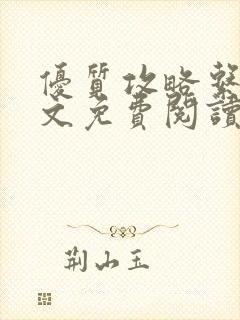 優質攻略繫
文免費閱讀
荆山玉